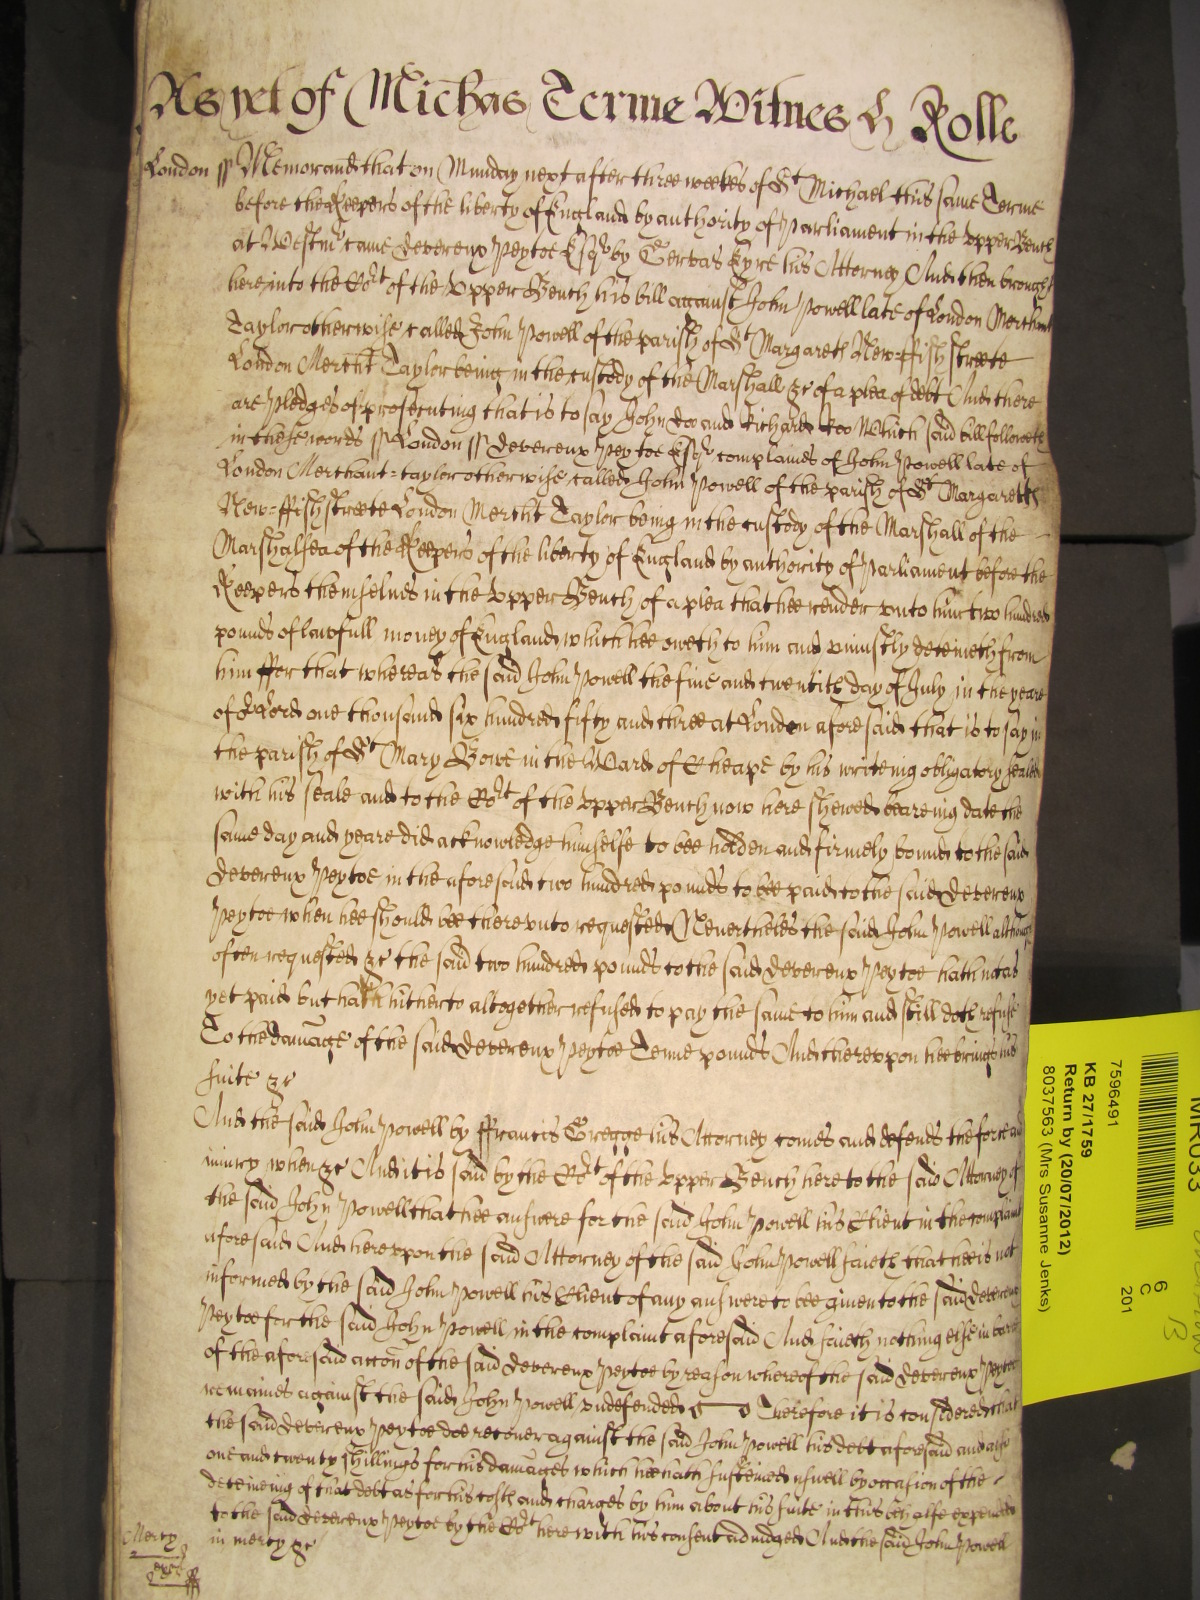 As yet of Michas Terme Witnes H Rolle
London ss Memorand that on Munday next after three weekes of St Michael this same Terme
before the Keepers of the liberty of England by authority of Parliament in the Upper Bench
at Westmr came Devereux Peytoe Esqr by Gervas Eyre his Attorney And then brought
here into the Cort of the Upper Bench his bill against John Powell late of London Merchant
Taylor otherwise called John Powell of the parish of St Margareth New-ffish streete
London Mercht Taylor being in the custody of the Marshall &c of a plea of debt And there
are pledges of prosecuting that is to say John Doo and Richard Roo Which said bill followeth
in these words ss London ss Devereux Peytoe Esqr complaines of John Powell late of
London Merchant-taylor otherwise called John Powell of the parish of St Margareth
New-ffish streete London Mercht Taylor being in the custody of the Marshall of the
Marshalsea of the Keepers of the liberty of England by authority of Parliament before the
Keepers themselves in the Upper Bench of a plea that hee render unto him two hundred
pounds of lawfull money of England which hee oweth to him and uniustly deteineth from
him ffor that whereas the said John Powell the five and twentith day of July in the yeare
of or Lord one thousand six hundred fifty and three at London aforesaid that is to say in
the parish of St Mary Bowe in the Ward of Cheape by his writeing obligatory sealed
with his seale and to the Cort of the Upper Bench now here shewed beareing date the
same day and yeare did acknowledge himselfe to bee holden and firmely bound to the said
Devereux Peytoe in the aforesaid two hundred pounds to bee paid to the said Devereux
Peytoe when hee should bee thereunto requested Neverthelés the said John Powell although
often requested &c the said two hundred pounds to the said Devereux Peytoe hath not as
yet paid but hath hitherto altogether refused to pay the same to him and still doth refuse
To the damage of the said Devereux Peytoe Tenne pounds And thereupon hee brings his
suite &c
And the said John Powell by ffrancis Gregge his Attorney comes and defends the force and
iniury when &c And it is said by the Cort of the Upper Bench here to the said Attorney of
the said John Powell that hee answere for the said John Powell his Client in the complaint
aforesaid And hereupon the said Attorney of the said John Powell saieth that hee is not
informed by the said John Powell his Client of any answere to bee given to the said Devereux
Peytoe for the said John Powell in the complaint aforesaid And saieth nothing else in barre
of the aforesaid accon of the said Devereux Peytoe by reason whereof the said Devereux Peytoe
remaines against the said John Powell undefended Therefore it is considered that
the said Devereux Peytoe doe recover against the said John Powell his debt aforesaid and also
one and twenty shillings for his damages which hee hath susteined aswell by occasion of the
deteineing of that debt as for his costs and charges by him about his suite in this behalfe expended
to the said Devereux Peytoe by the Cort here with his consent adiudged And the said John Powell
in mercy &c
Mercy
MR033
7596491
KB 27/1759
Return by (20/07/2012)
8037563 (Mrs Susanne Jenks)
6
C
201